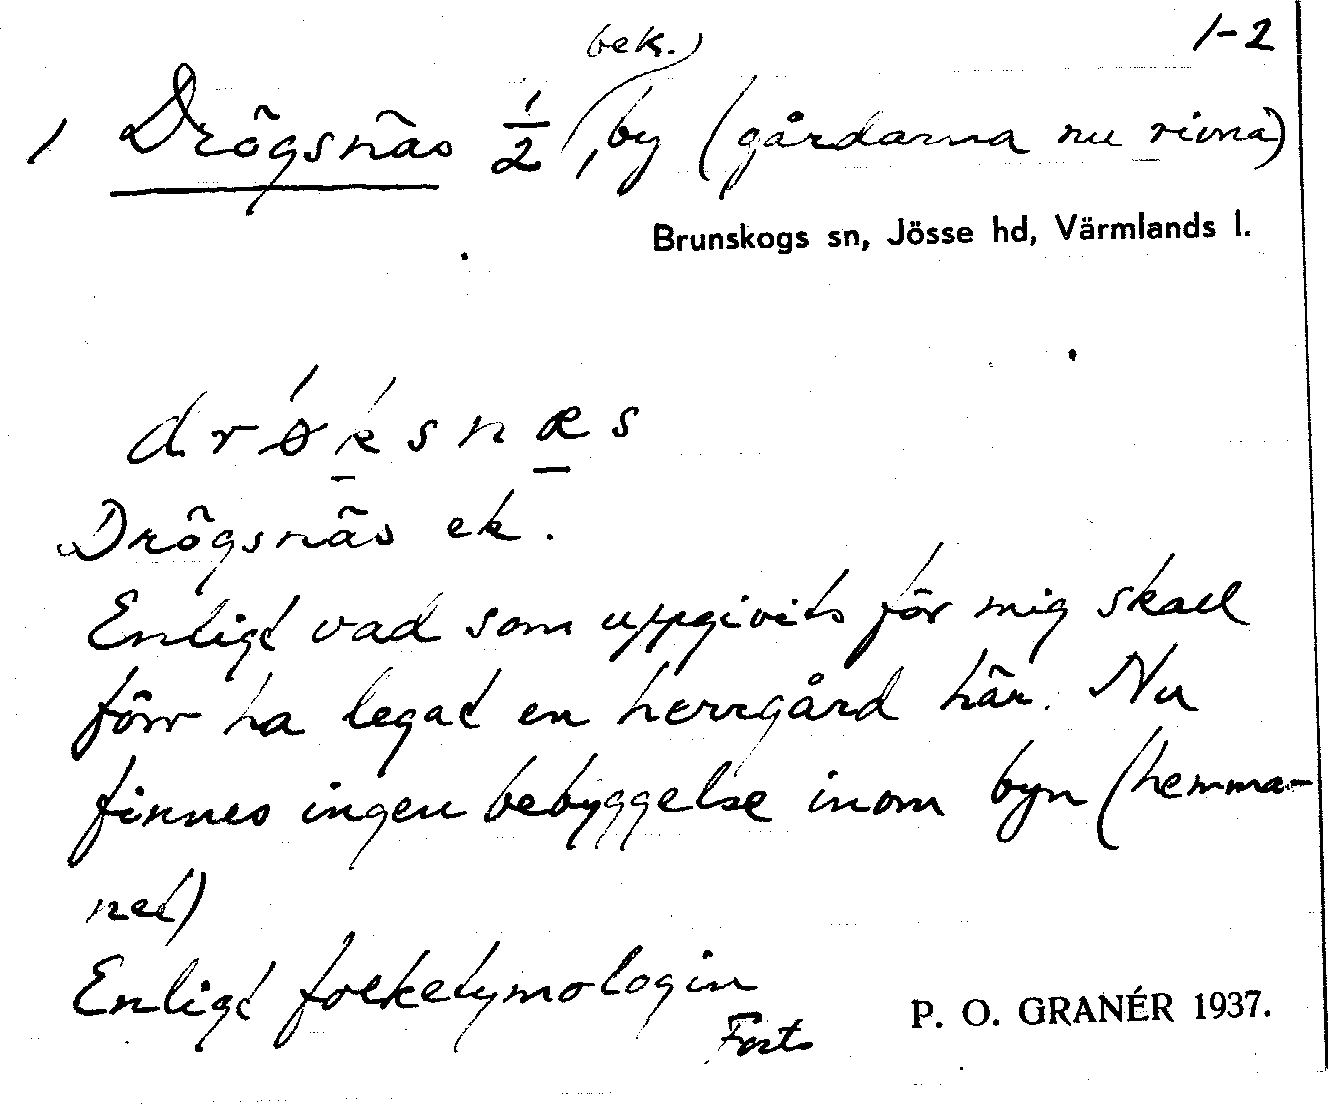 1-2
bek.
1 Drögsnäs 1/2, by (gårdarna nu rivna)
Brunskogs sn, Jösse hd, Värmlands l.
drǿksnæs
Drögsnäs ek.
Enligt vad som uppgivits för mig skall
förr ha legat en herrgård här. Nu
finnes ingen bebyggelse inom byn (hemma-
net)
Enligt folketymologin
Forts
P. O. GRANÉR 1937.